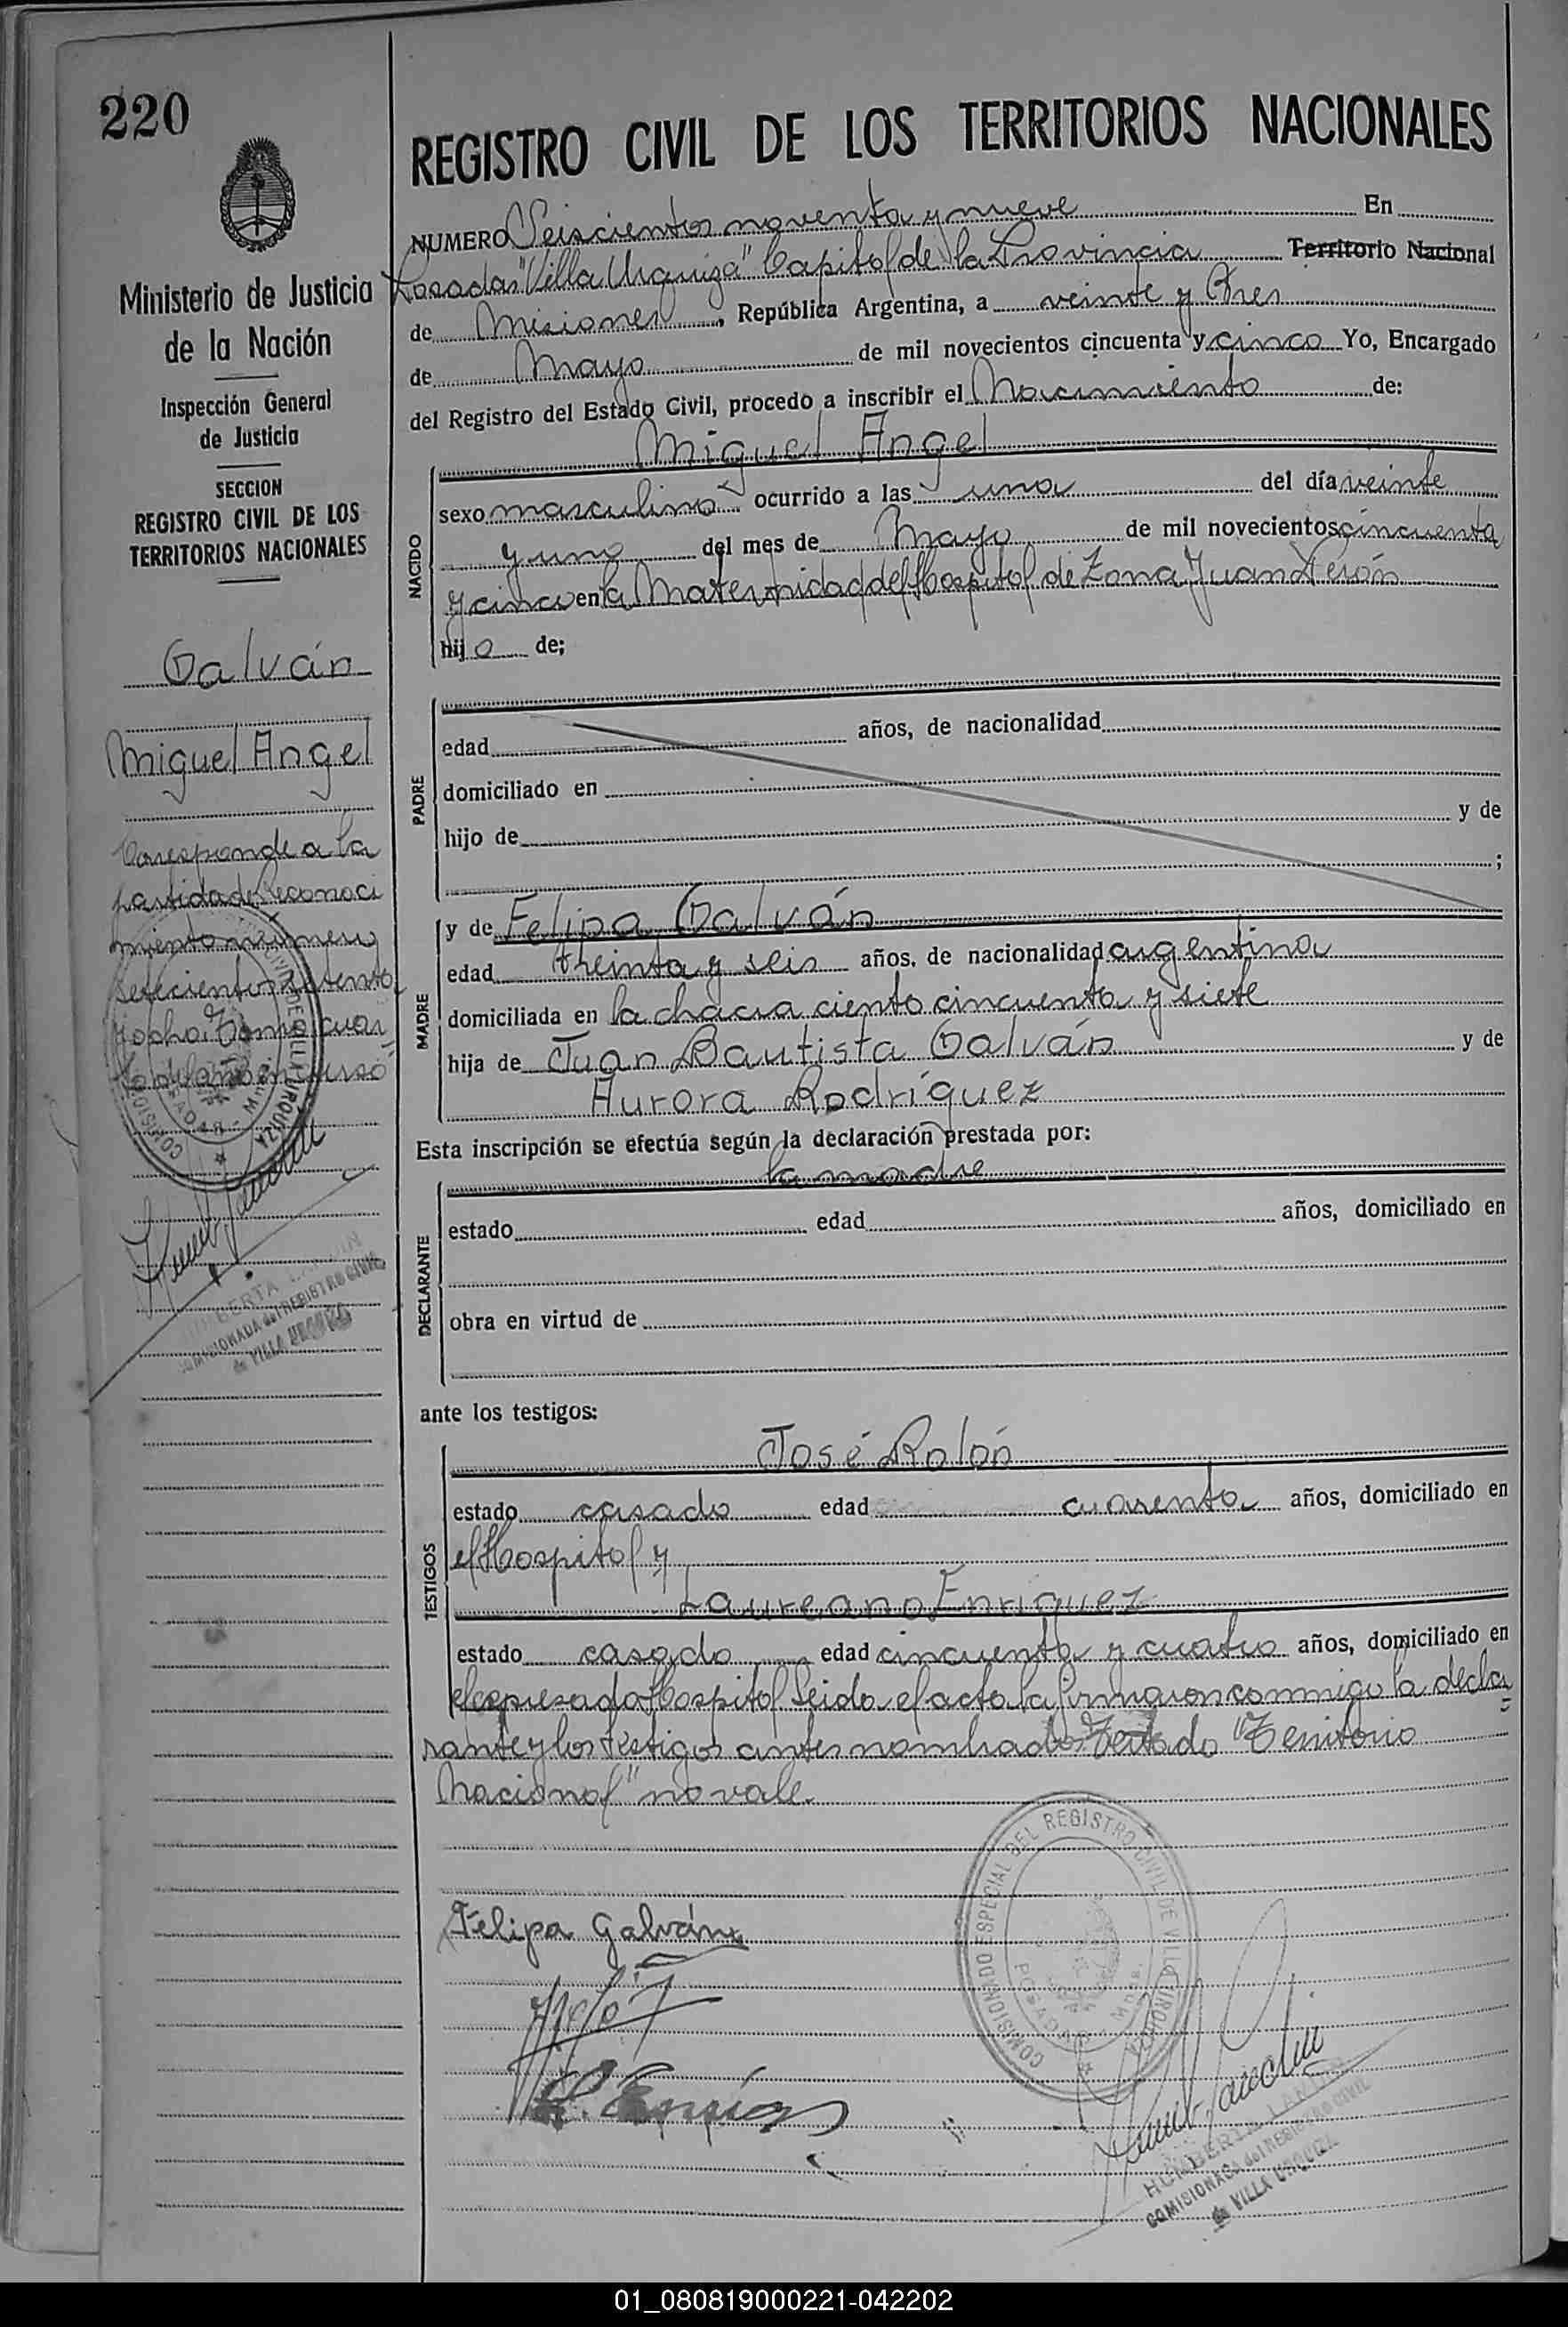 220
Ministerio de Justicia
de la Nación
Inspección General
de Justicia
SECCION
REGISTRO CIVIL DE LOS
TERRITORIOS NACIONALES
Galván
Miguel Angel
Corresponde a la
partida de Reconoci
miento número
setecientos setenta
y ocho. Tomo cuar
to del año en curso
COMISIONADA del REGISTRO CIVIL
de VILLA URQUIZA
REGISTRO CIVIL DE LOS TERRITORIOS NACIONALES
NUMERO Seiscientos noventa y nueve En
Posadas "Villa Urquiza" Capital de la Provincia Territorio Nacional
de Misiones, República Argentina, a veinte y tres
de Mayo de mil novecientos cincuenta y cinco Yo, Encargado
del Registro del Estado Civil, procedo a inscribir el Nacimiento de:
Miguel Angel
NACIDO
sexo masculino ocurrido a las una del día veinte
y uno del mes de Mayo de mil novecientos cincuenta
y cinco en la Maternidad del Hospital de Zona Juan Perón
hijo de;
PADRE
edad años, de nacionalidad
domiciliado en
hijo de y de
;
MADRE
y de Felipa Galván
edad treinta y seis años, de nacionalidad argentina
domiciliada en la chacra ciento cincuenta y siete
hija de Juan Bautista Galván y de
Aurora Rodríguez
Esta inscripción se efectúa según la declaración prestada por:
la madre
DECLARANTE
estado edad años, domiciliado en
obra en virtud de
ante los testigos:
TESTIGOS
José Rolón
estado casado edad cuarenta años, domiciliado en
el Hospital y
Laureano Enriquez
estado casado edad cincuenta y cuatro años, domiciliado en
el expresado Hospital Leida el acta la firmaron conmigo la decla
rante y los testigos antes nombrados Testado "Territorio
Nacional" no vale.
Felipa Galván
L. Enríquez
COMISIONADO ESPECIAL DEL REGISTRO CIVIL DE VILLA URQUIZA
POSADAS - Mnes.
HUMBERTA
COMISIONADA del REGISTRO CIVIL
de VILLA URQUIZA
01_080819000221-042202